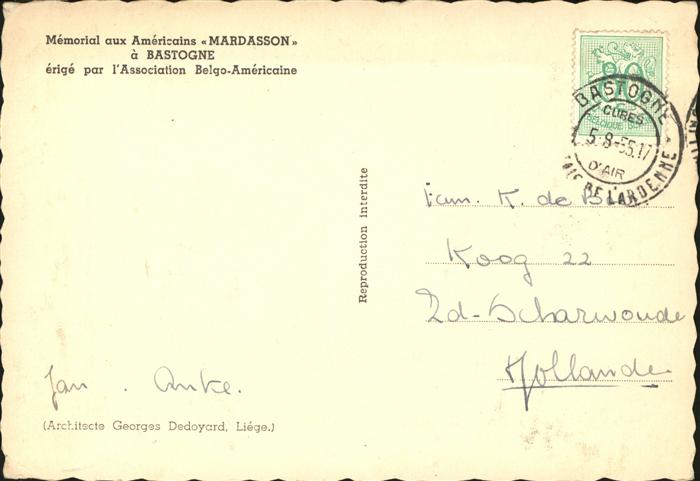 Mémorial aux Américains «MARDASSON»
à BASTOGNE
érigé par l'Association Belgo-Américaine
BASTOGNE
CURES
BELGIQUE
5-8-55.17
D'AIR
DE L'ARDENNE
Reproduction interdite
Fam. K. de
Koog 22
Zd-Scharwoude
Hollande
Jan . Anke.
(Architecte Georges Dedoyard, Liége.)